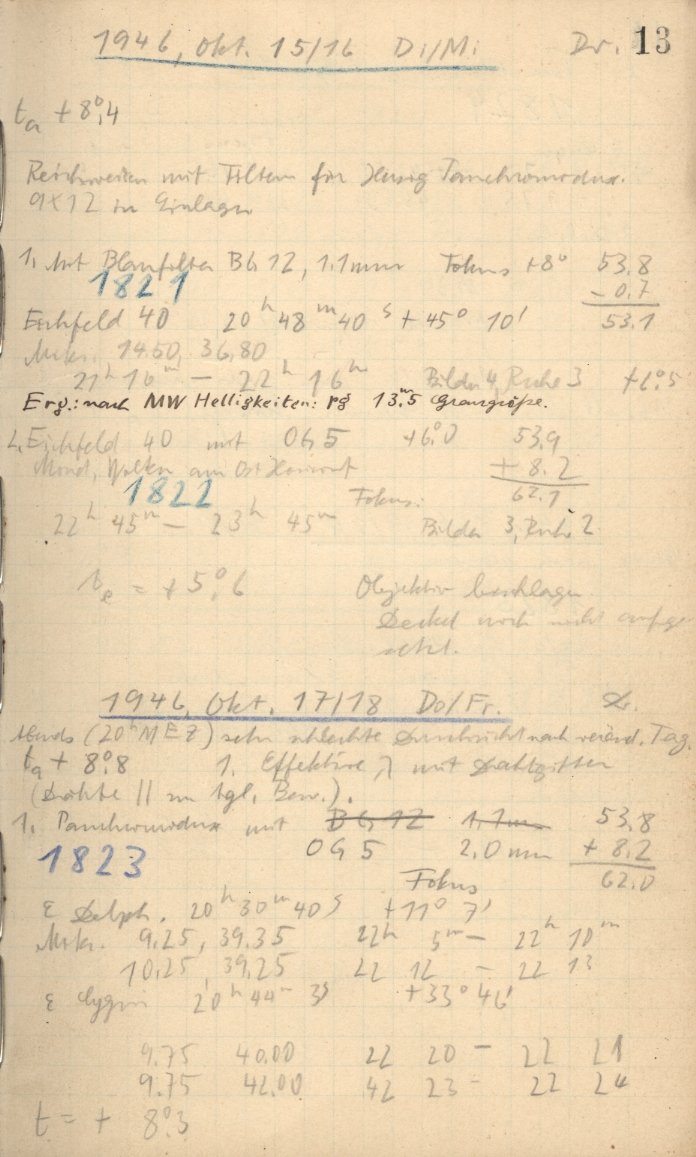 1946, Okt. 15/16 Di/Mi Dr. 13
ta + 8°,4
Reichweiten mit Filtern für Panchromodux.
9x12 in Einlagen
1. Mit Blaufilter BG 12, 1.1mm Fokus +8° 53,8
1821 - 0,7
Eichfeld 40 20h 48m 40s + 45° 10' 53,1
Mikr. 14.50, 36.80
21h 16m — 22h 16m Bilder 4, Ruhe 3
Erg.: nach MW Helligkeiten: pg 13m.5 Grenzgröße.
2. Eichfeld 40 mit OG 5 +6°,0 53,9
Mond, Wolken am Ost Horizont + 8.2
1822 Fokus: 62,1
22h 45m — 23h 45m Bilder 3, Ruhe 2
te = + 5°,6 Objektiv beschlagen.
Deckel noch nicht aufge
setzt.
1946, Okt. 17/18 Do/Fr. Dr.
Abends (20h MEZ) sehr schlechte Durchsicht nach Tag.
ta + 8°,8 1. Effektive λ mit Drahtgitter
(Drähte || zur tgl. Bew.).
1. Panchromodux mit BG 12 1.1mm 53,8
OG 5 2.0 mm + 8,2
1823 Fokus 62,0
ε Delph. 20h 30m 40s +11° 7'
Mikr. 9.25, 39.35 22h 5m — 22h 10m
10.25, 39.25 22 12 — 22 13
ε Cygni 20h 44m 3s +33° 46'
9.75 40.00 22 20 — 22 21
9.75 42.00 42 23 — 22 24
t = + 8°,3